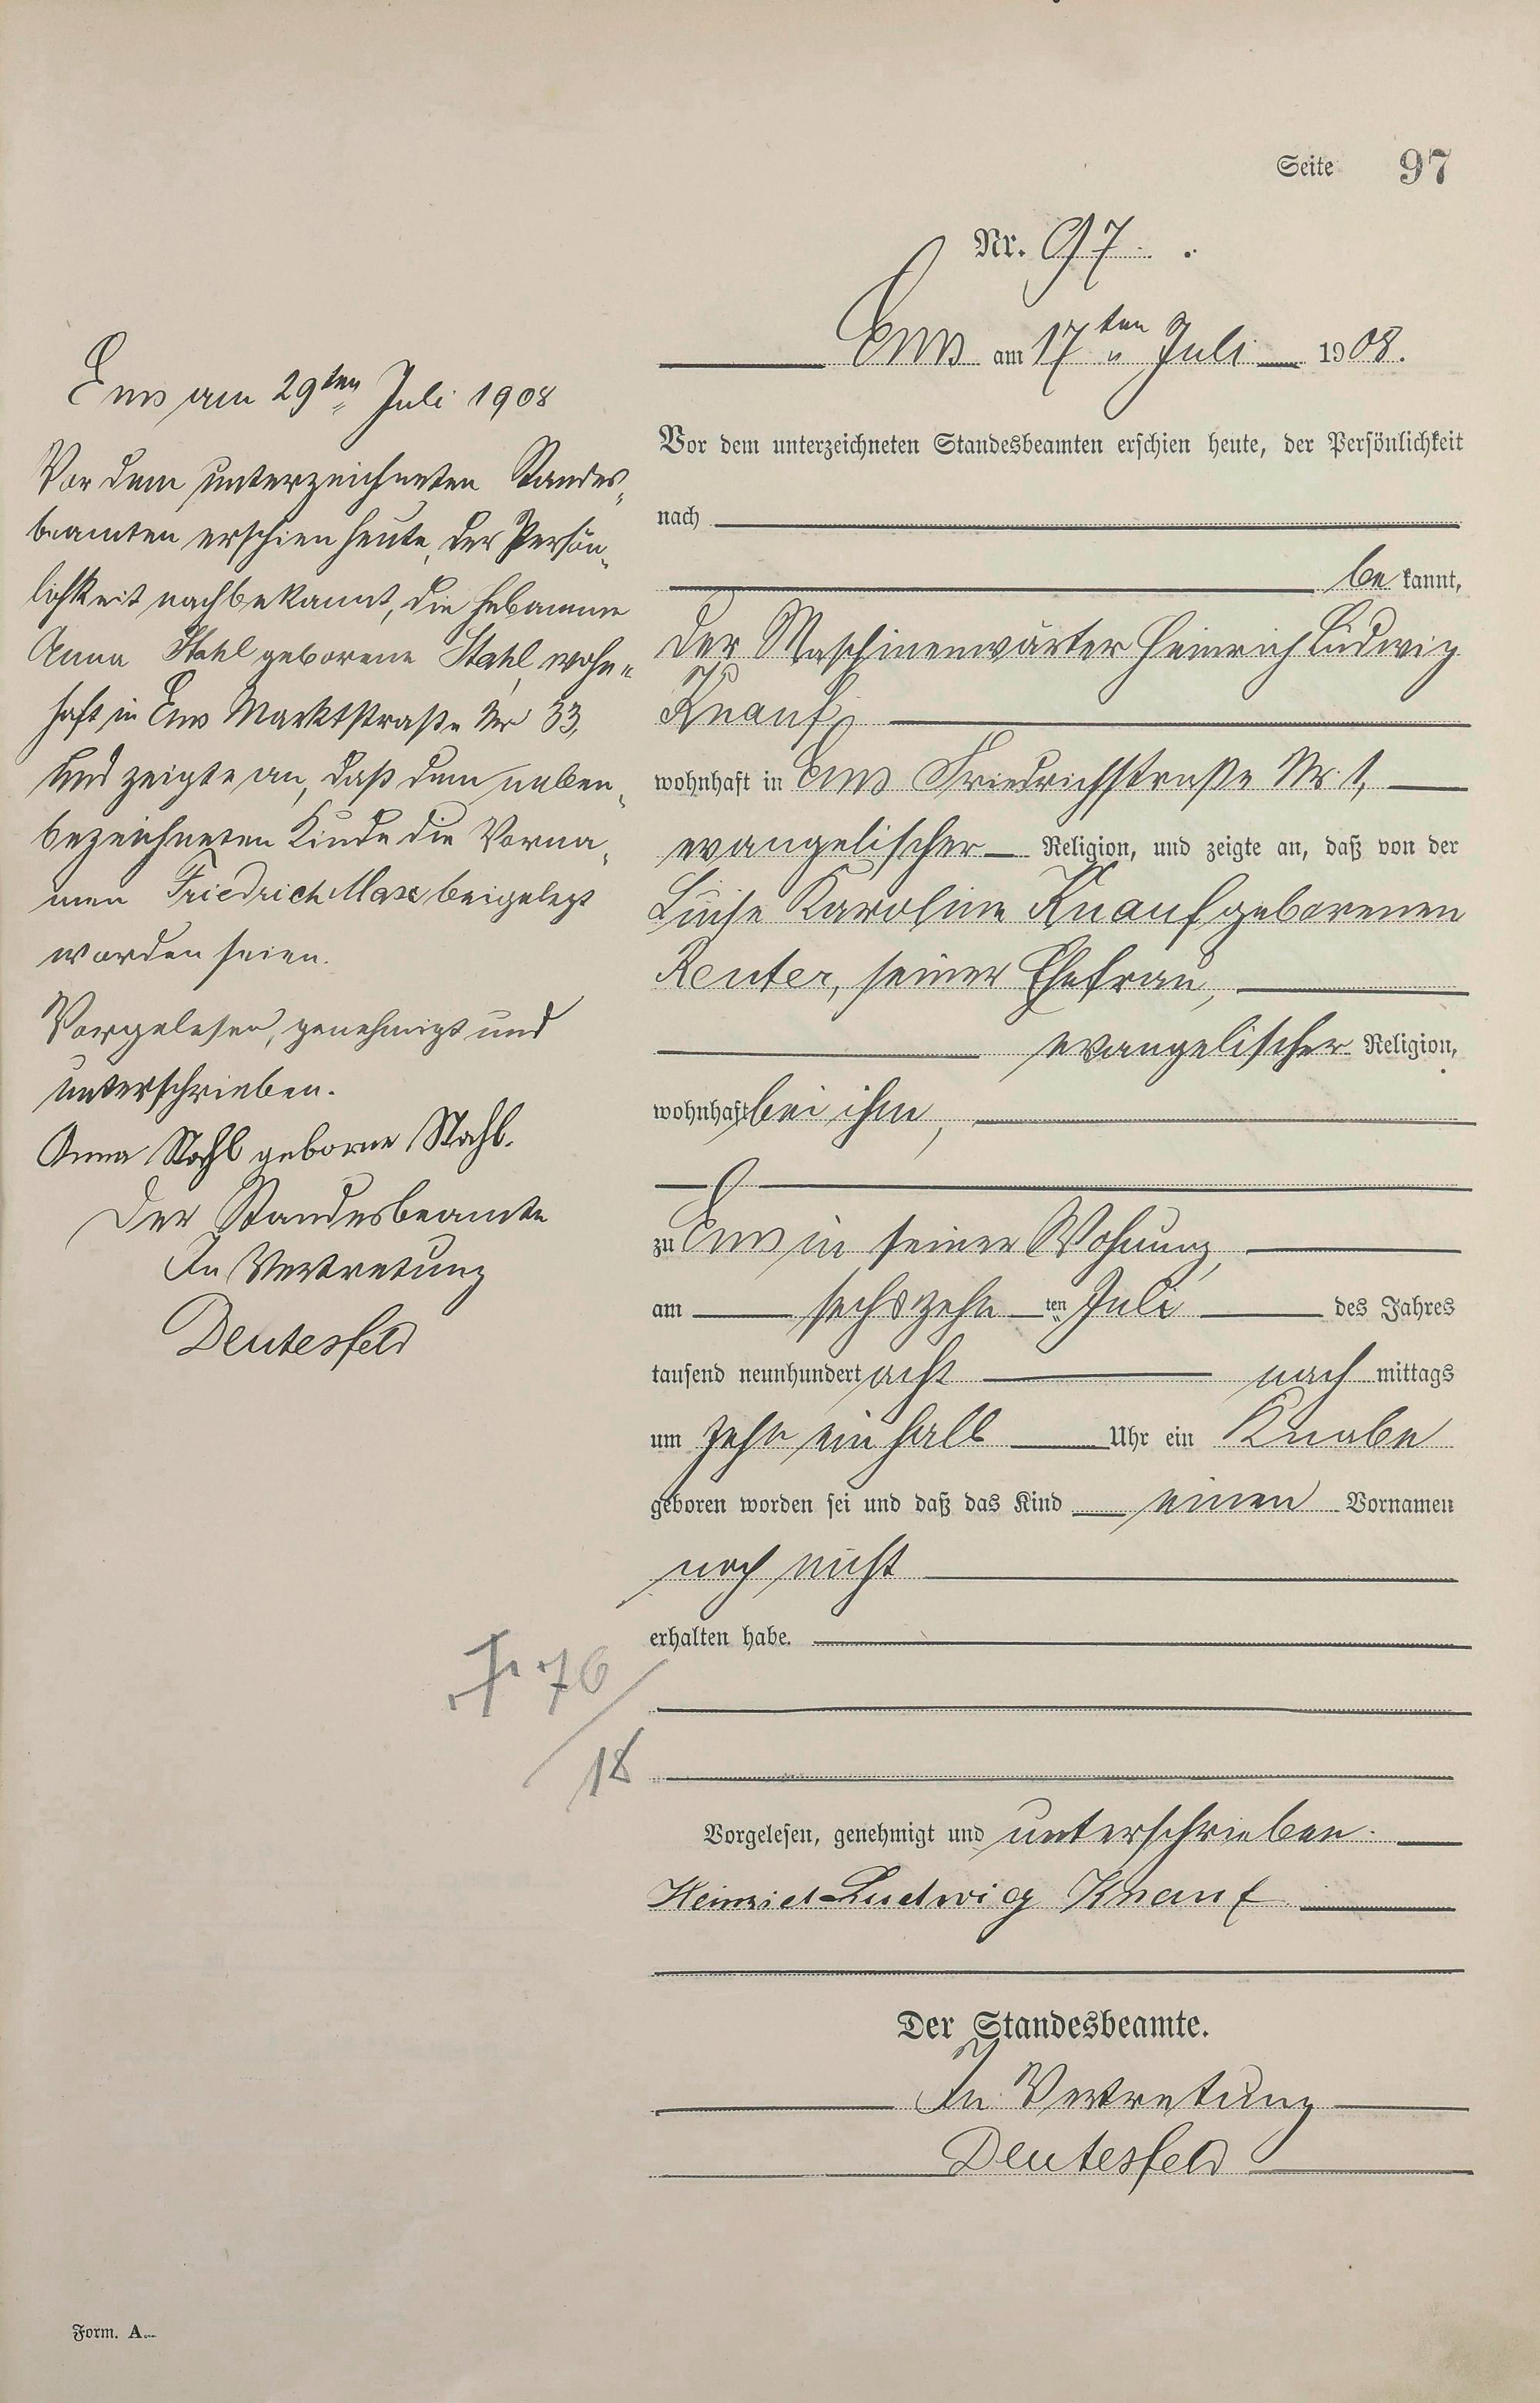 Seite 97
Nr. 97.
Ems am 17ten Juli 1908.
Vor dem unterzeichneten Standesbeamten erschien heute, der Persönlichkeit
nach
bekannt,
der Maschinenwärter Heinrich Ludwig
Knauf,
wohnhaft in Ems Friedrichstraße Nr. 1,
evangelischer Religion, und zeigte an, daß von der
Luise Karoline Knauf geborenen
Reuter, seiner Ehefrau,
evangelischer Religion,
wohnhaft bei ihm,
zu Ems in seiner Wohnung,
am sechszehn ten Juli des Jahres
tausend neunhundert acht nach mittags
um zehn ein halb Uhr ein Knabe
geboren worden sei und daß das Kind einen Vornamen
noch nicht
erhalten habe.
Vorgelesen, genehmigt und unterschrieben.
Heinrich Ludwig Knauf
Der Standesbeamte.
In Vertretung
Deutesfeld
Ems am 29ten Juli 1908
Vor dem unterzeichneten Standes-
beamten erschien heute, der Persön-
lichkeit nach bekannt, die Hebamme
Anna Stahl geborene Stahl, wohn-
haft in Ems Marktstraße Nr 33,
und zeigte an, daß dem neben-
bezeichneten Kinde die Vorna-
men Friedrich Max beigelegt
worden seien.
Vorgelesen, genehmigt und
unterschrieben.
Anna Stahl geborne Stahl.
Der Standesbeamte
In Vertretung
Deutesfeld
76
18
Form. A.